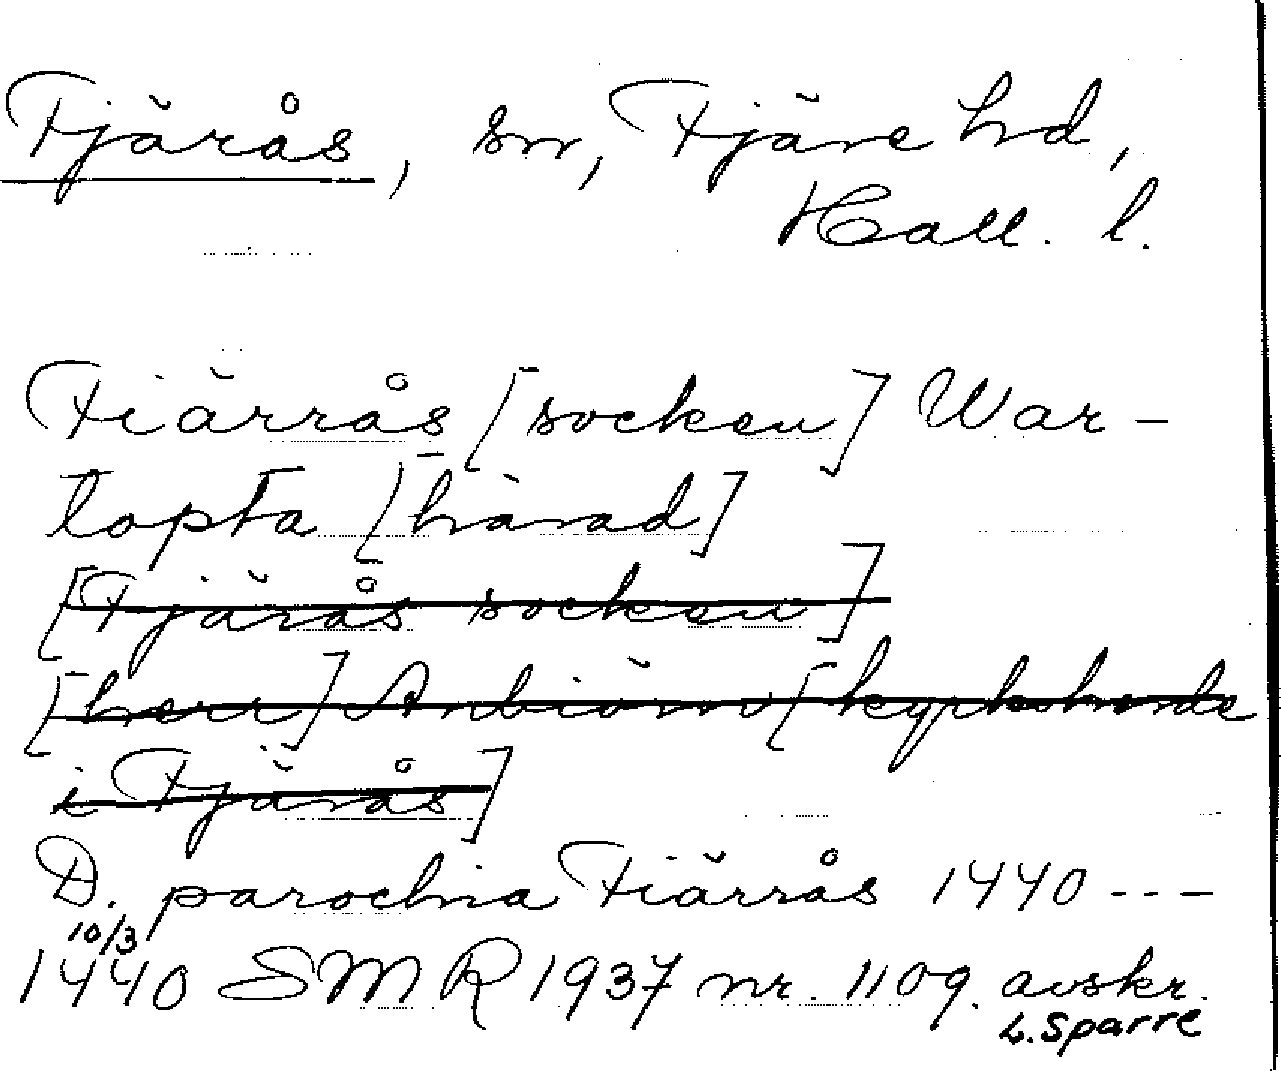 Fjärås, sn, Fjäre hd,
Hall. l.
Fiärrås [socken] War-
topta [härad]
[Fjärås socken]
[herr] Anbiörn [kyrkoherde
i Fjärås]
D. parochia Fiärrås 1440 ---
10/3
1440 SMR 1937 nr. 1109. avskr.
L. Sparre